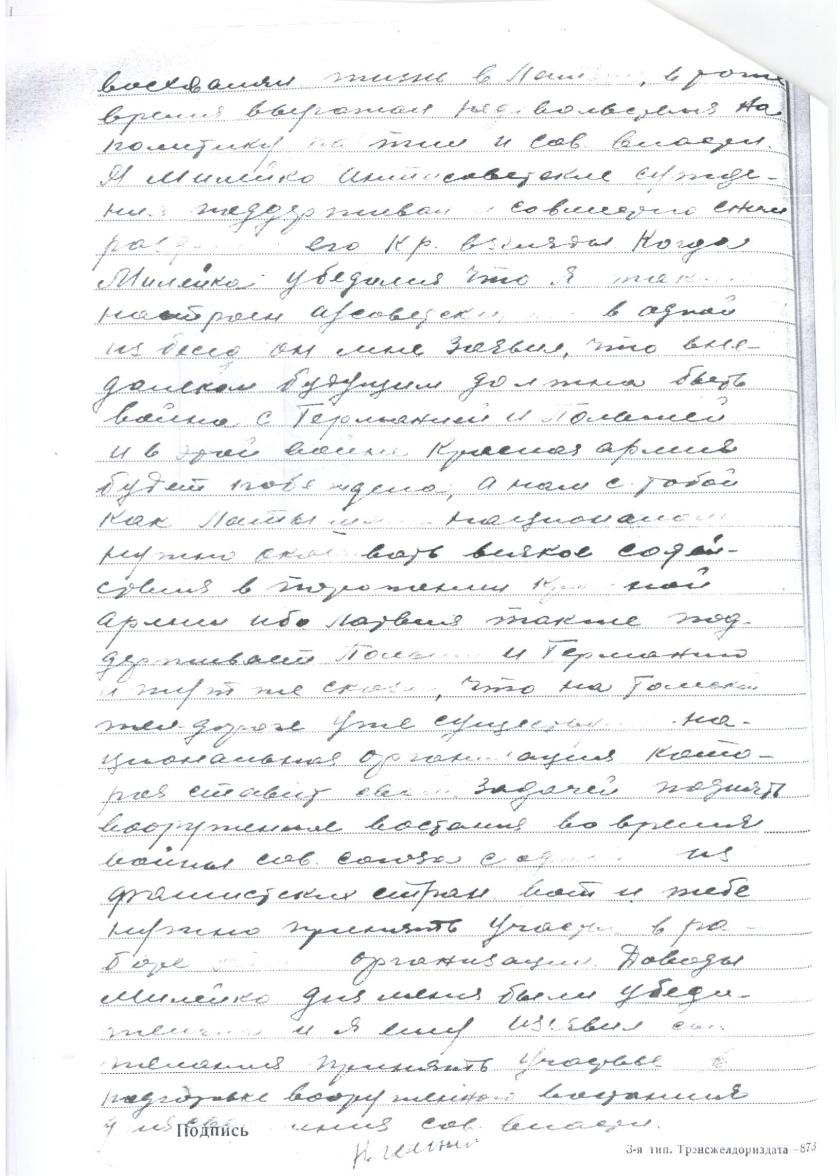 восхвалял жизнь в , в тоже
время выражал недовольствия на
политику и сов. власти.
Я Милейко Антисоветские сужде-
ния поддерживал и совместно с ним
его К.р. взгляды Когда
Милейко убедился что я
настроен а/советски в одной
из бесед он мне Заявил, что в не-
далеком будущим должна быть
война с Германией и Польшей
и в этой войне Красная армия
будет побеждена, а нам с тобой
как националам
нужно оказывать всякое содей-
ствия в поражении Красной
армии ибо Латвия также под-
держивает и Германию
и тут же сказал, что на Томской
жел дороге уже существует на-
циональная организация кото-
рая ставит своей Задачей поднять
вооруженные востания во время
войны сов. союза с одной из
фашистских стран вот и тебе
нужно принять участие в ра-
боте организации. Доводы
Милейко для меня были убеди-
тельными и я ему изъявил
желания принять участье в
подготовке вооруженного востания
сов. власти.
Подпись
3-я тип. Трансжелдориздата -873